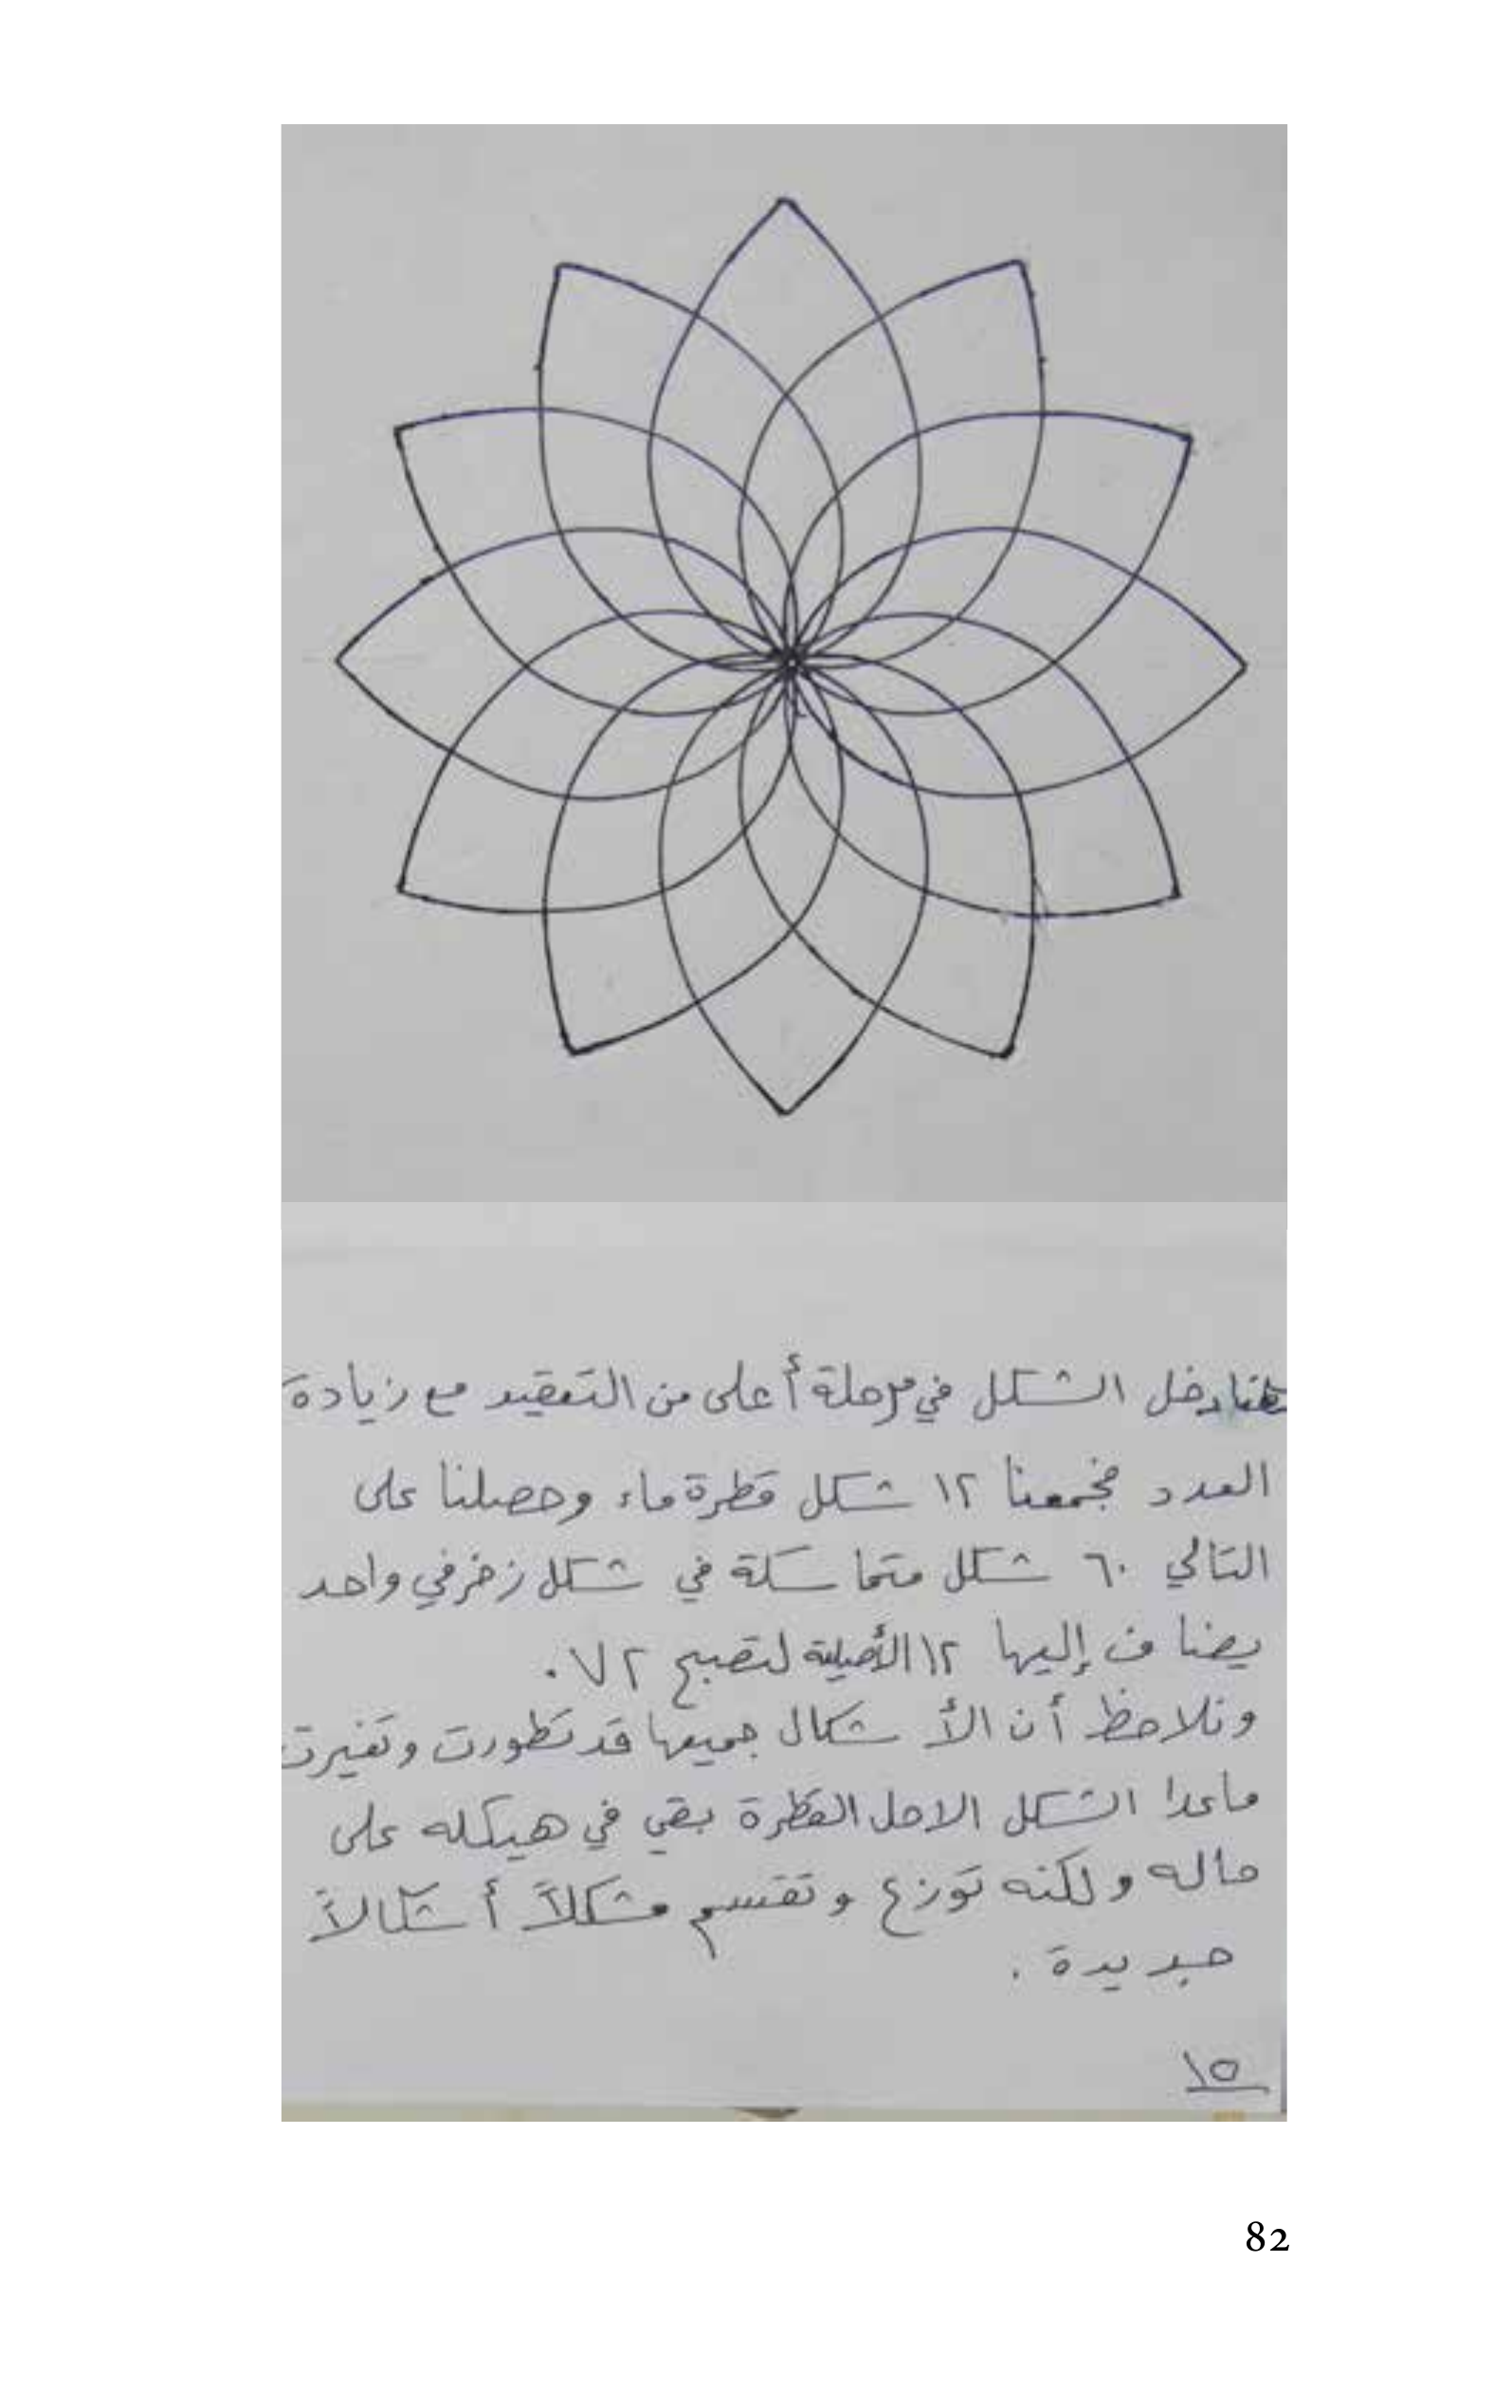 هنا دخل الشكل في مرحلة أعلى من التعقيد مع زيادة
العدد فجمعنا ١٢ شكل قطرة ماء وحصلنا على
التالي ٦٠ شكل متماسكة في شكل زخرفي واحد
يضاف إليها ١٢ الأصلية لتصبح ٧٢.
ونلاحظ أن الأشكال جميعها قد تطورت وتغيرت
ماعدا الشكل الاصل القطرة بقي في هيكله على
حاله ولكنه توزع وتقسم مشكلاً أشكالاً
جديدة .
١٥
82